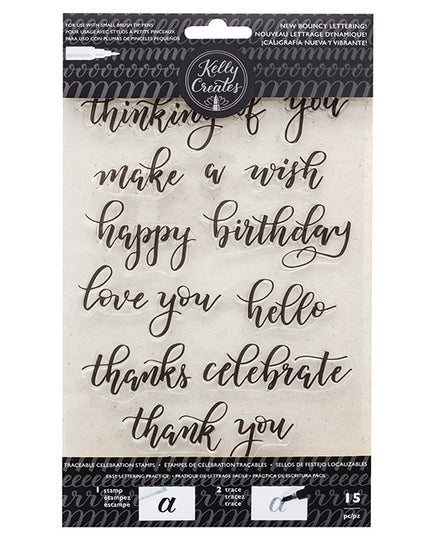 FOR USE WITH SMALL BRUSH TIP PENS
POUR USAGE AVEC STYLOS À PETITS PINCEAUX
PARA USO CON PLUMAS DE PINCELES PEQUEÑOS
Kelly
Creates
NEW BOUNCY LETTERING!
NOUVEAU LETTRAGE DYNAMIQUE!
¡CALIGRAFÍA NUEVA Y VIBRANTE!
thinking of you
make a wish
happy birthday
love you hello
thanks celebrate
thank you
TRACEABLE CELEBRATION STAMPS • ÉTAMPES DE CÉLÉBRATION TRAÇABLES • SELLOS DE FESTEJO LOCALIZABLES
EASY LETTERING PRACTICE • PRATIQUE DE LETTRAGE FACILE • PRÁCTICA DE ESCRITURA FÁCIL
1 stamp
étampez
estampe
a
2 trace
tracez
trace
a
15
pc/pz